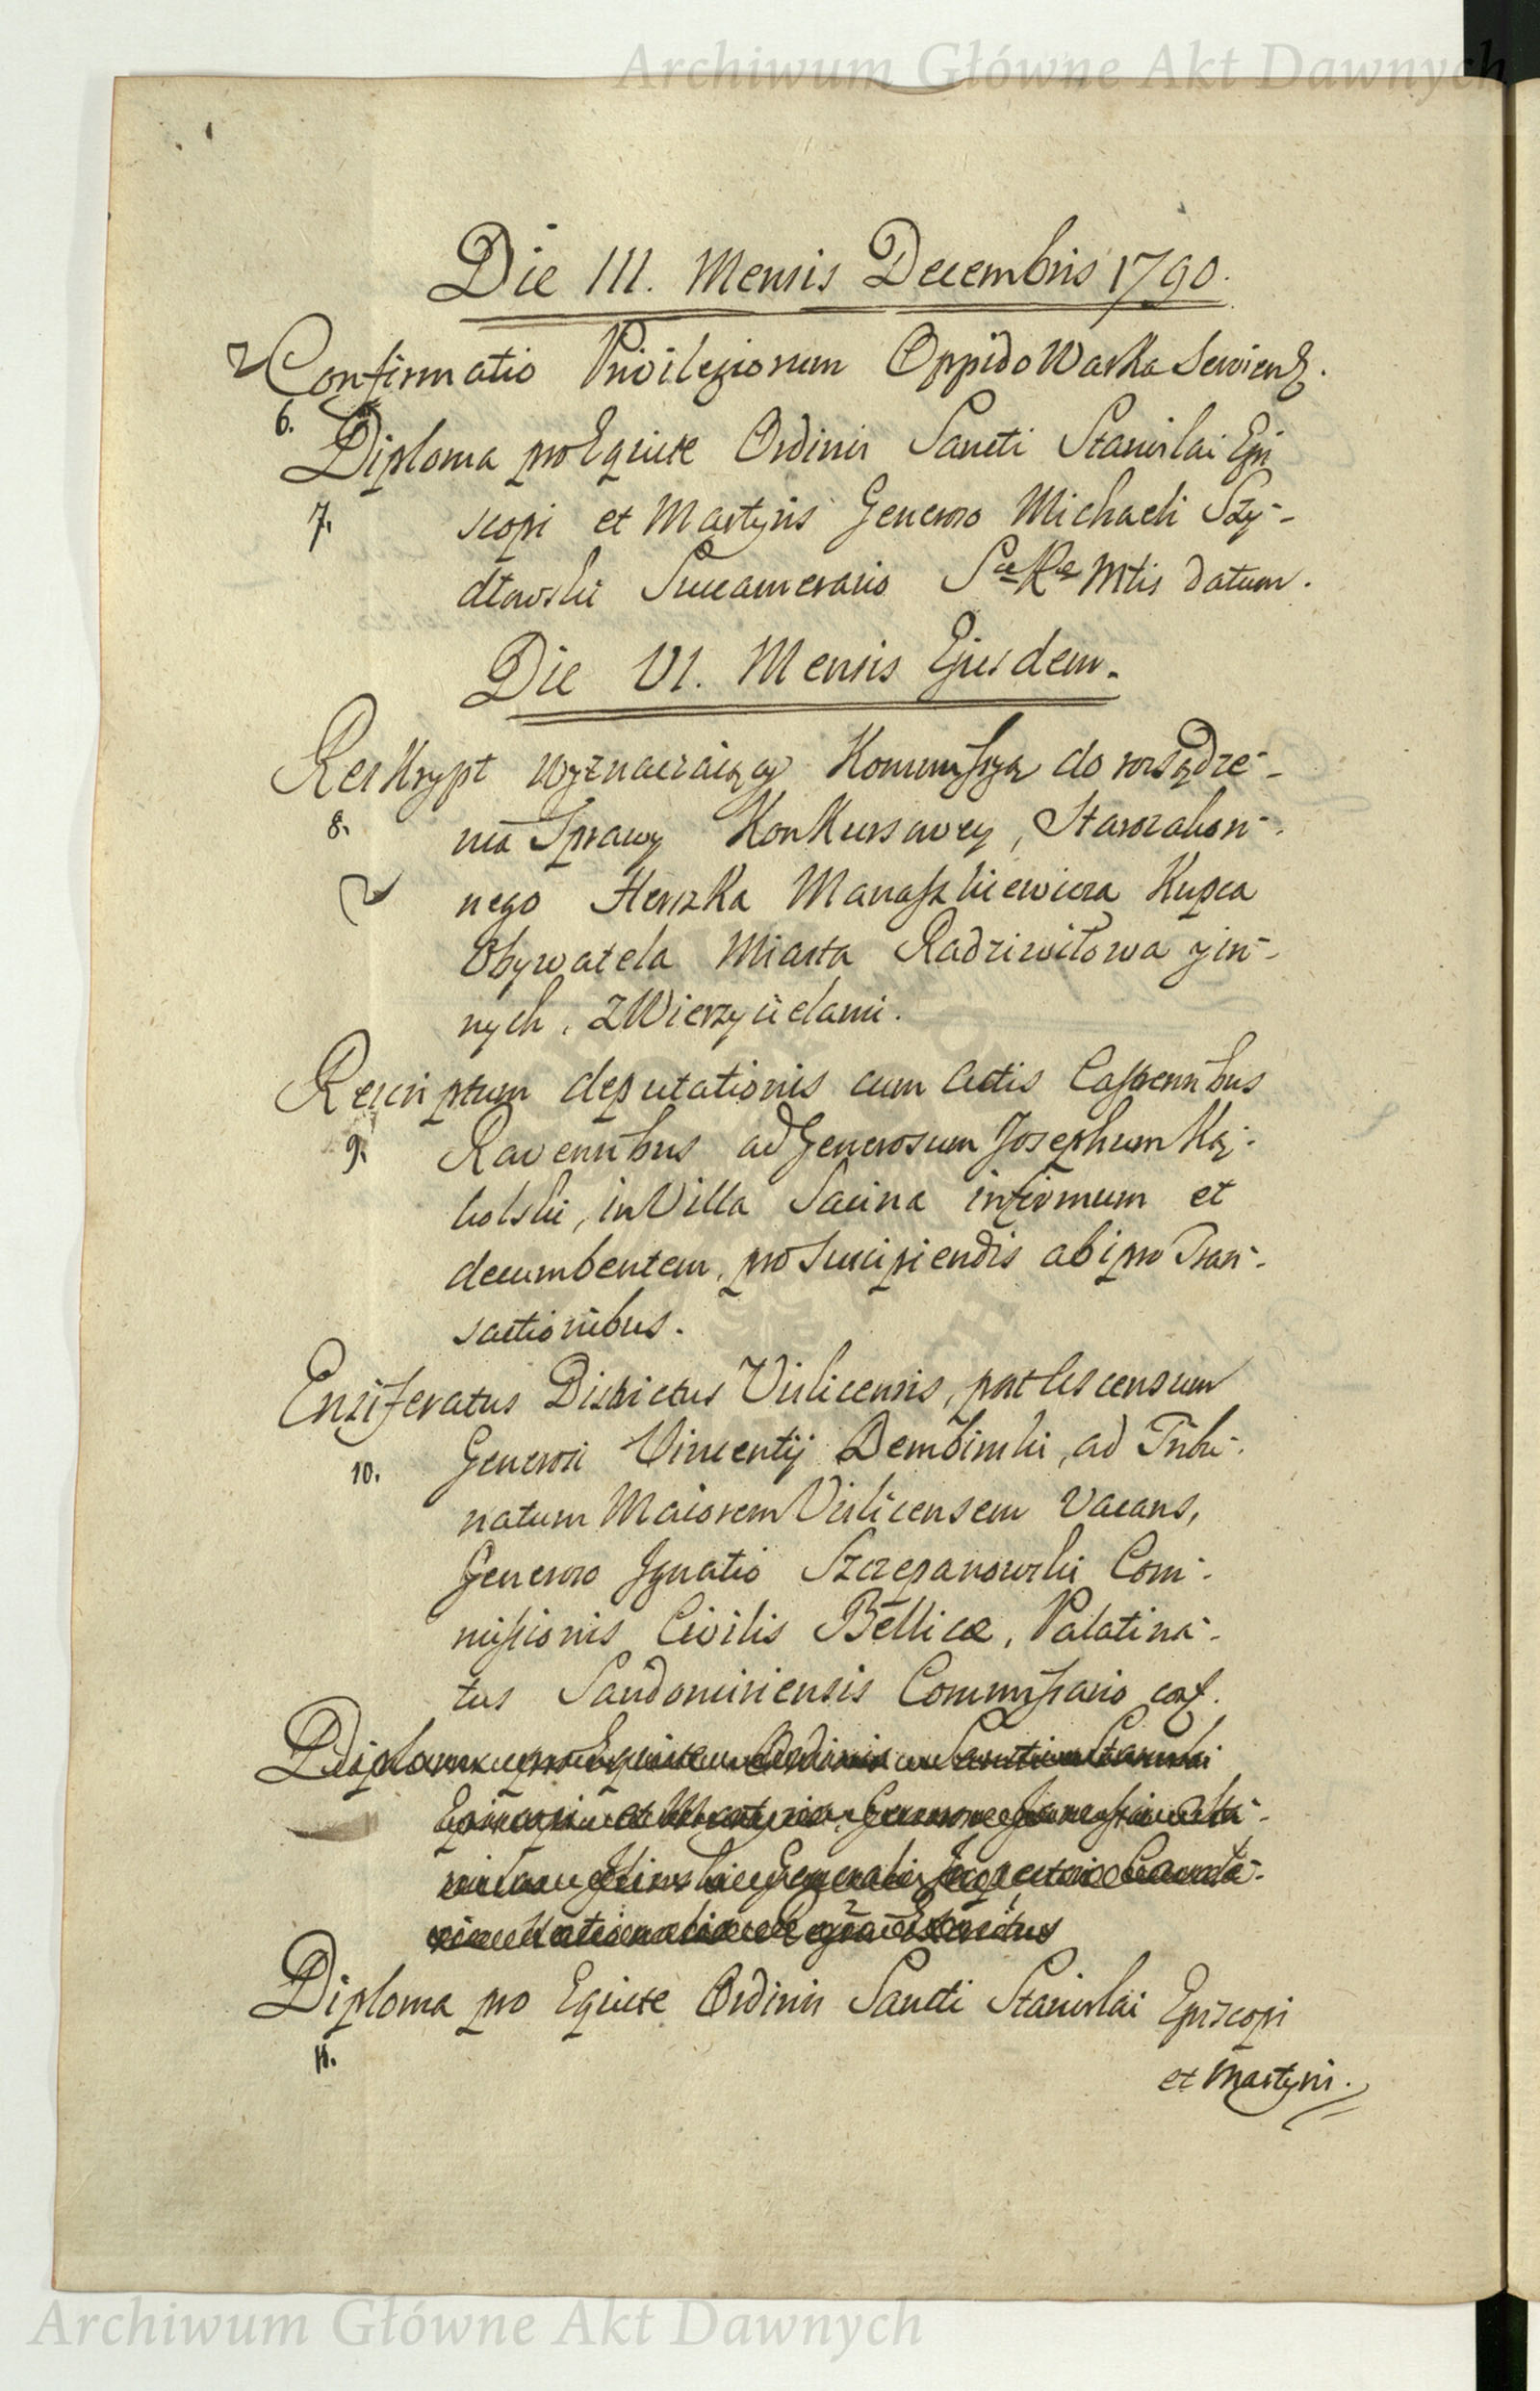 Archiwum Główne Akt Dawnych
Die III. Mensis Decembris 1790.
Confirmatio Privilegiorum Oppido Warka Servienz.
6.
Diploma pro Equite Ordinis Sancti Stanislai Epi
7. scopi et Martyris Generoso Michaeli Szy-
dłowski Succamerario Sæ Ræ Mtis datum.
Die VI. Mensis Ejusdem.
Reskrypt wyznaczaiący Kommissyą do rozsądze-
8. nia Sprawy Konkursowey, Starozakon-
nego Herszka Manaszkiewicza Kupca
Obywatela Miasta Radziwiłowa y in-
nych, z Wierzycielami.
Rescriptum deputationis cum Actis Castrensibus
9. Ravensibus ad Generosum Josephum Ką-
kolski, in Villa Sacina infirmum et
decumbentem, pro Suscipiendis ab ipso Tran-
sactionibus.
Ensiferatus Districtus Vislicensis, post Ascensum
10. Generosi Vincentij Dembinski, ad Tribu-
natum Maiorem Vislicensem vacans,
Generoso Ignatio Szczepanowski Com-
missionis Civilis Bellicæ, Palatina-
tus Sandomiriensis Commissario conf.
Diploma pro Equite Ordinis Sancti Stanislai
Episcopi et Martyris Generoso
Generali
Diploma pro Equite Ordinis Sancti Stanislai Episcopi
11.
et Martyris.
Archiwum Główne Akt Dawnych